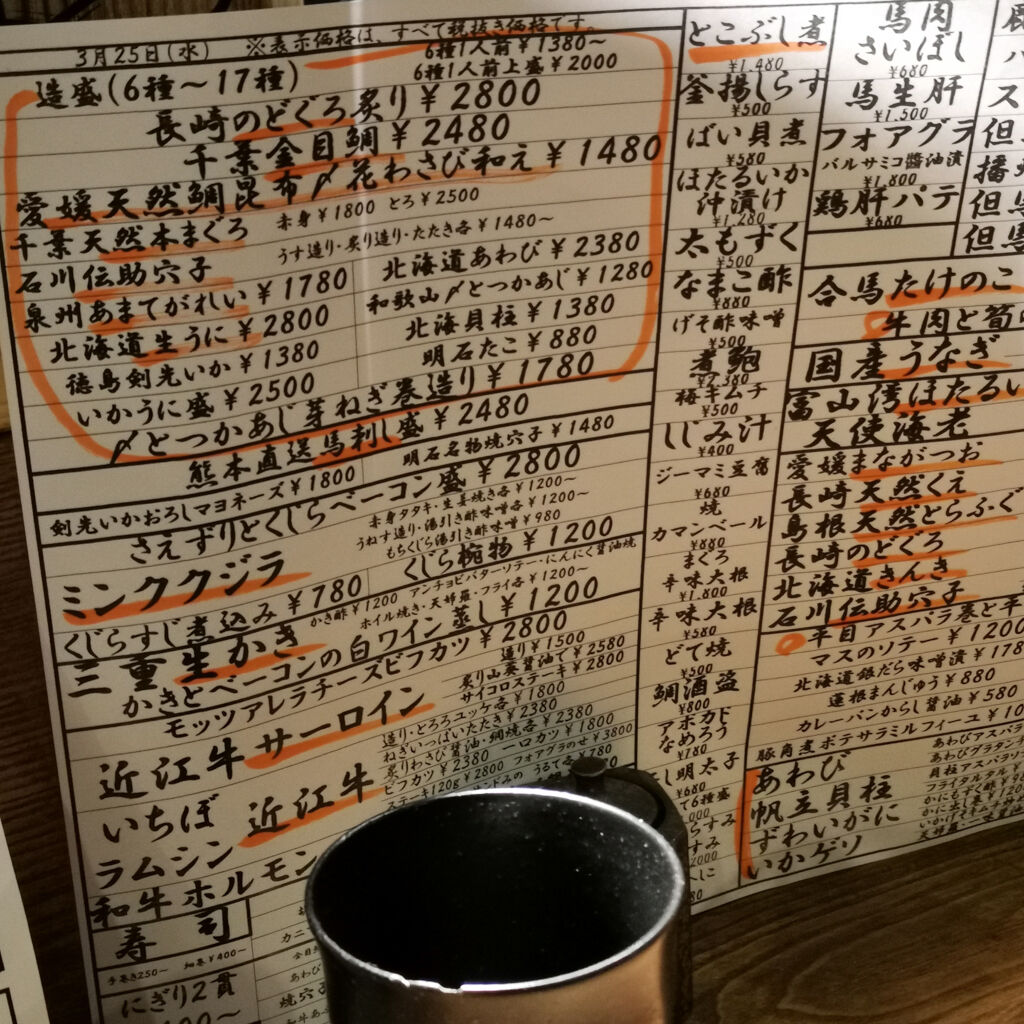 3月25日(水) ※表示価格は、すべて税抜き価格です。
造盛(6種～17種) 6種1人前¥1380～
6種1人前上盛¥2000
長崎のどぐろ炙り¥2800
千葉金目鯛¥2480
愛媛天然鯛昆布〆花わさび和え¥1480
千葉天然本まぐろ 赤身¥1800 とろ¥2500
石川伝助穴子 うす造り・炙り造り・たたき各¥1480～
泉州あまてがれい¥1780 北海道あわび¥2380
北海道生うに¥2800 和歌山〆とつかあじ¥1280
徳島剣先いか¥1380 北海貝柱¥1380
いかうに盛¥2500 明石たこ¥880
〆とつかあじ芽ねぎ巻造り¥1780
熊本直送馬刺し盛¥2480
剣先いかおろしマヨネーズ¥1800 明石名物焼穴子¥1480
さえずりとくじらベーコン盛¥2800
ミンククジラ 赤身タタキ・生姜焼き各¥1200～
うねす造り・湯引き酢味噌各¥1200～
もちくじら湯引き酢味噌¥980
くじらすじ煮込み¥780 くじら椀物¥1200
三重生かき かき酢¥1200 アンチョビバターソテー・にんにく醤油焼
ホイル焼き・天婦羅・フライ各¥1200～
かきとベーコンの白ワイン蒸し¥1200
モッツァレラチーズビフカツ¥2800
近江牛サーロイン 造り¥1500
炙り山葵醤油で¥2580
サイコロステーキ¥2800
いちぼ 近江牛 造り・とろろユッケ各¥1800
ねぎいっぱいたたき¥2380
炙りわさび醤油・網焼各¥2380
ビフカツ¥2380 一口カツ¥1800
ステーキ120g¥2800 フォアグラのせ¥3800
ラムシン
和牛ホルモン
寿司
手巻き250～ 細巻¥400～
にぎり2貫
とこぶし煮
¥1,480
釜揚しらす
¥500
ばい貝煮
¥580
ほたるいか
沖漬け
¥1,280
太もずく
¥500
なまこ酢
¥880
げそ酢味噌
¥500
煮鮑
¥2,380
梅キムチ
¥500
しじみ汁
¥400
ジーマミ豆腐
¥680
焼
カマンベール
¥880
まぐろ
辛味大根
¥1,800
辛味大根
¥580
どて焼
¥500
鯛酒盗
¥800
アボカド
なめろう
¥780
明太子
¥680
馬肉
さいぼし
¥680
馬生肝
¥1,500
フォアグラ
バルサミコ醤油漬
¥1,800
鶏肝パテ
¥680
但
播
但
但馬
合馬たけのこ
牛肉と筍
国産うなぎ
富山湾ほたるい
天使海老
愛媛まながつお
長崎天然くえ
島根天然とらふぐ
長崎のどぐろ
北海道きんき
石川伝助穴子
平目アスパラ巻と平
マスのソテー¥1200
北海道銀だら味噌漬¥178
蓮根まんじゅう¥880
カレーパンからし醤油¥580
豚角煮ポテサラミルフィーユ¥10
あわび
帆立貝柱
ずわいがに
いかゲソ
あわびアスパラ
あわびグラタン
貝柱アスパラソ